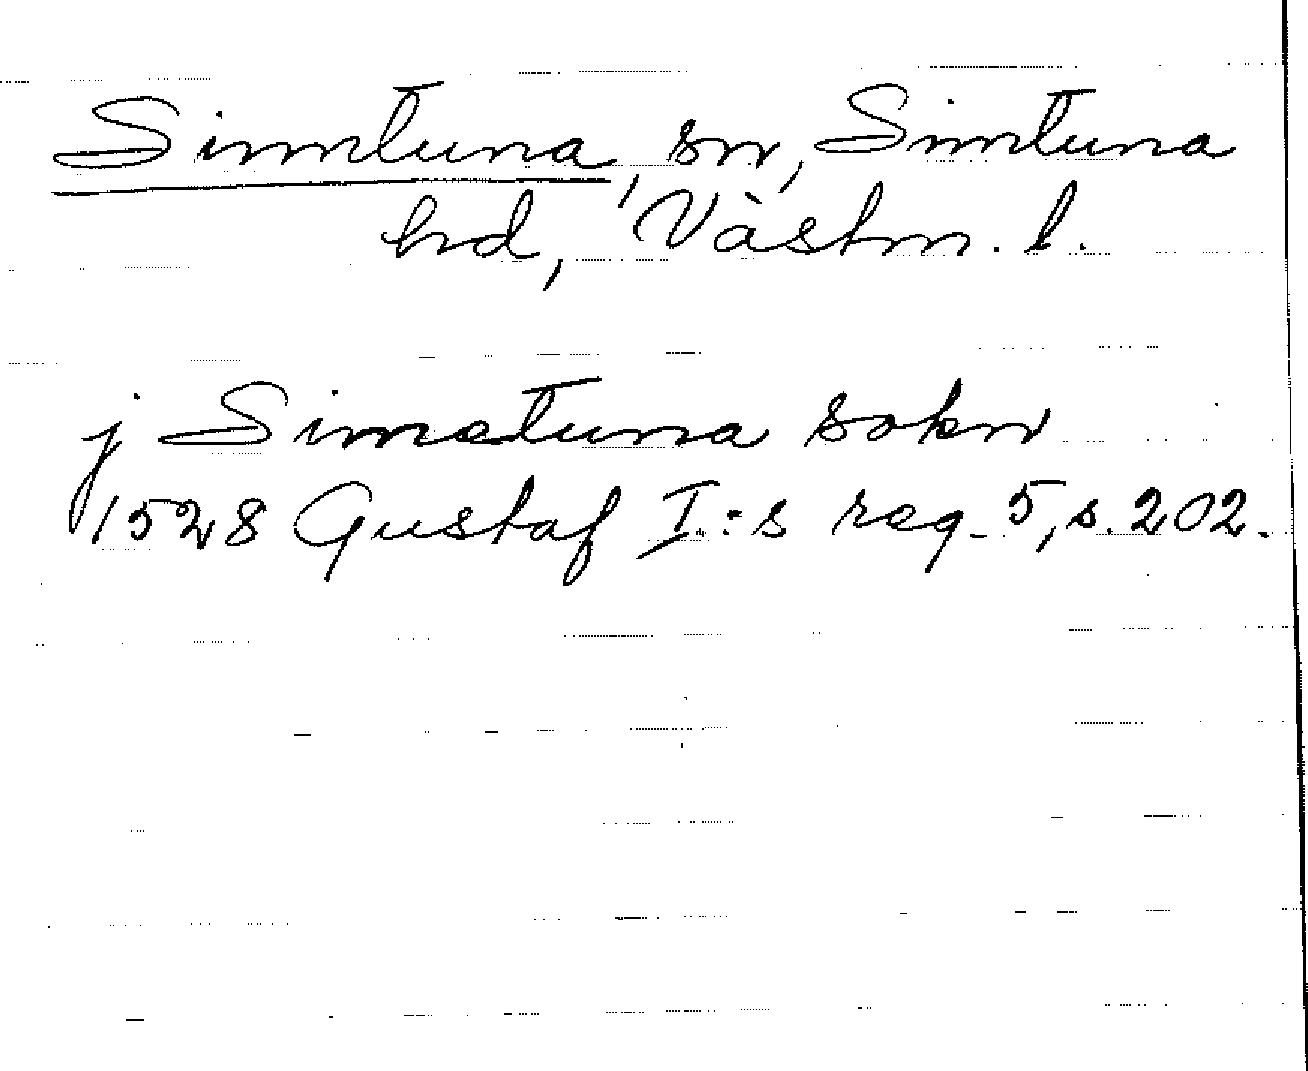 Simtuna, sn, Simtuna
hd, Västm. l.
j Simatuna sokn
1528 Gustaf I:s reg. 5, s. 202.